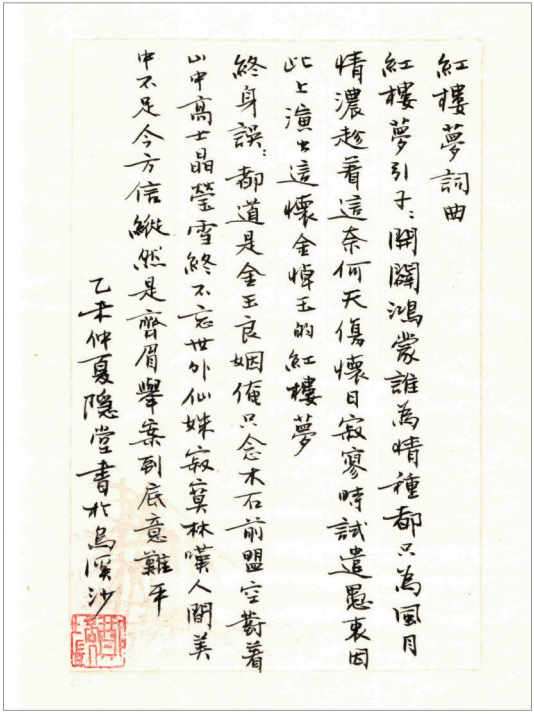 紅樓夢詞曲
紅樓夢引子：開闢鴻蒙誰為情種都只為風月
情濃趁着這奈何天傷懷日寂寥時試遣愚衷因
此上演出這懷金悼玉的紅樓夢
終身誤：都道是金玉良姻俺只念木石前盟空對着
山中高士晶瑩雪終不忘世外仙姝寂寞林嘆人間美
中不足今方信縱然是齊眉舉案到底意難平
乙未仲夏隱堂書於烏溪沙